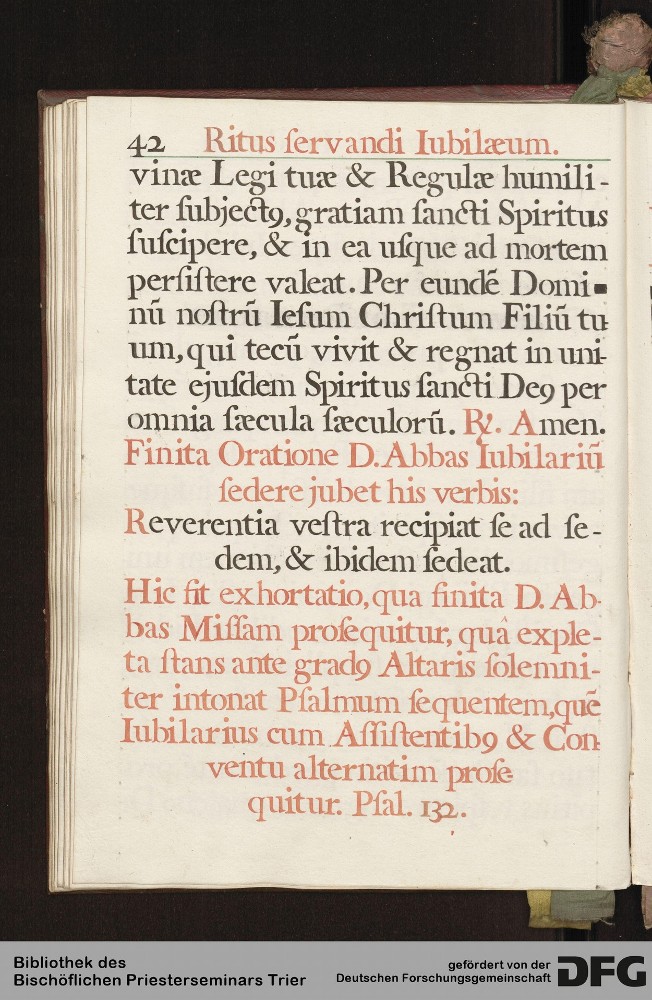 42 Ritus ſervandi Iubilæum.
vinæ Legi tuæ & Regulæ humili-
ter ſubjectꝰ, gratiam ſancti Spiritus
ſuſcipere, & in ea uſque ad mortem
perſiſtere valeat. Per eundē Domi-
nū noſtrū Ieſum Chriſtum Filiū tu-
um, qui tecū vivit & regnat in uni-
tate ejuſdem Spiritus ſancti Deꝰ per
omnia ſæcula ſæculorū. ℟. Amen.
Finita Oratione D. Abbas Iubilariū
ſedere jubet his verbis:
Reverentia veſtra recipiat ſe ad ſe-
dem, & ibidem ſedeat.
Hic fit exhortatio, qua finita D. Ab-
bas Miſſam proſequitur, quâ exple-
ta ſtans ante gradꝰ Altaris ſolemni-
ter intonat Pſalmum ſequentem, quē
Iubilarius cum Aſſiſtentibꝰ & Con-
ventu alternatim proſe-
quitur. Pſal. 132.
Bibliothek des
Bischöflichen Priesterseminars Trier
gefördert von der
Deutschen Forschungsgemeinschaft
DFG